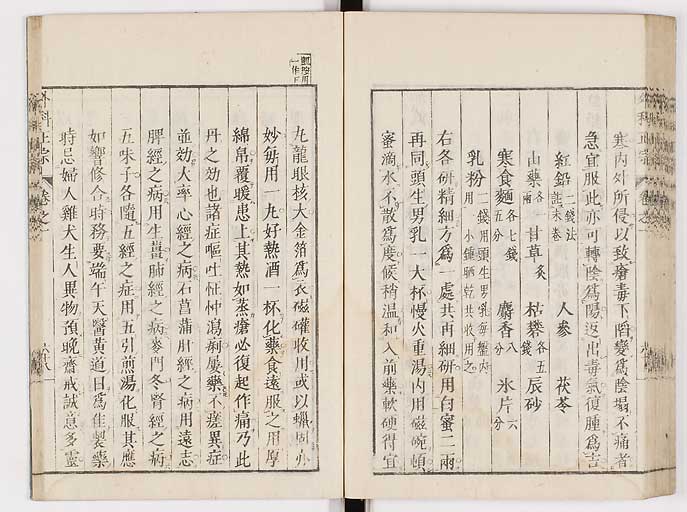 寒内外所侵以致瘡毒下陷變爲陰塌不痛者
急宜服此亦可轉陰爲陽返出毒氣復腫爲吉
紅鉛二錢法註末卷 人參 茯苓
山藥各一兩 甘草炙 枯礬各五錢 辰砂
寒食麵各七錢五分 麝香八分 氷片六分
乳粉
右各研精細方爲一處共再細研用白蜜二兩
再同頭生男乳一大杯慢火重湯内用磁碗頓
蜜滴水不散爲度候稍溫和入前藥軟硬得宜
丸龍眼核大金箔爲衣磁罐收用或以蠟固亦
妙每用一丸好熱酒一杯化藥食遠服之用厚
綿帛覆暖患上其熱如蒸瘡必復起作痛乃此
丹之効也諸症嘔吐怔忡瀉痢屢藥不瘥異症
並効大率心經之病石菖蒲肝經之病用遠志
脾經之病用生薑肺經之病麥門冬腎經之病
五味子各隨五經之症用五引煎湯化服其應
如響修合時務要端午天醫黄道日爲佳製藥
時忌婦人雞犬生人異物預晩齋戒誠意多靈
外科正宗 卷之